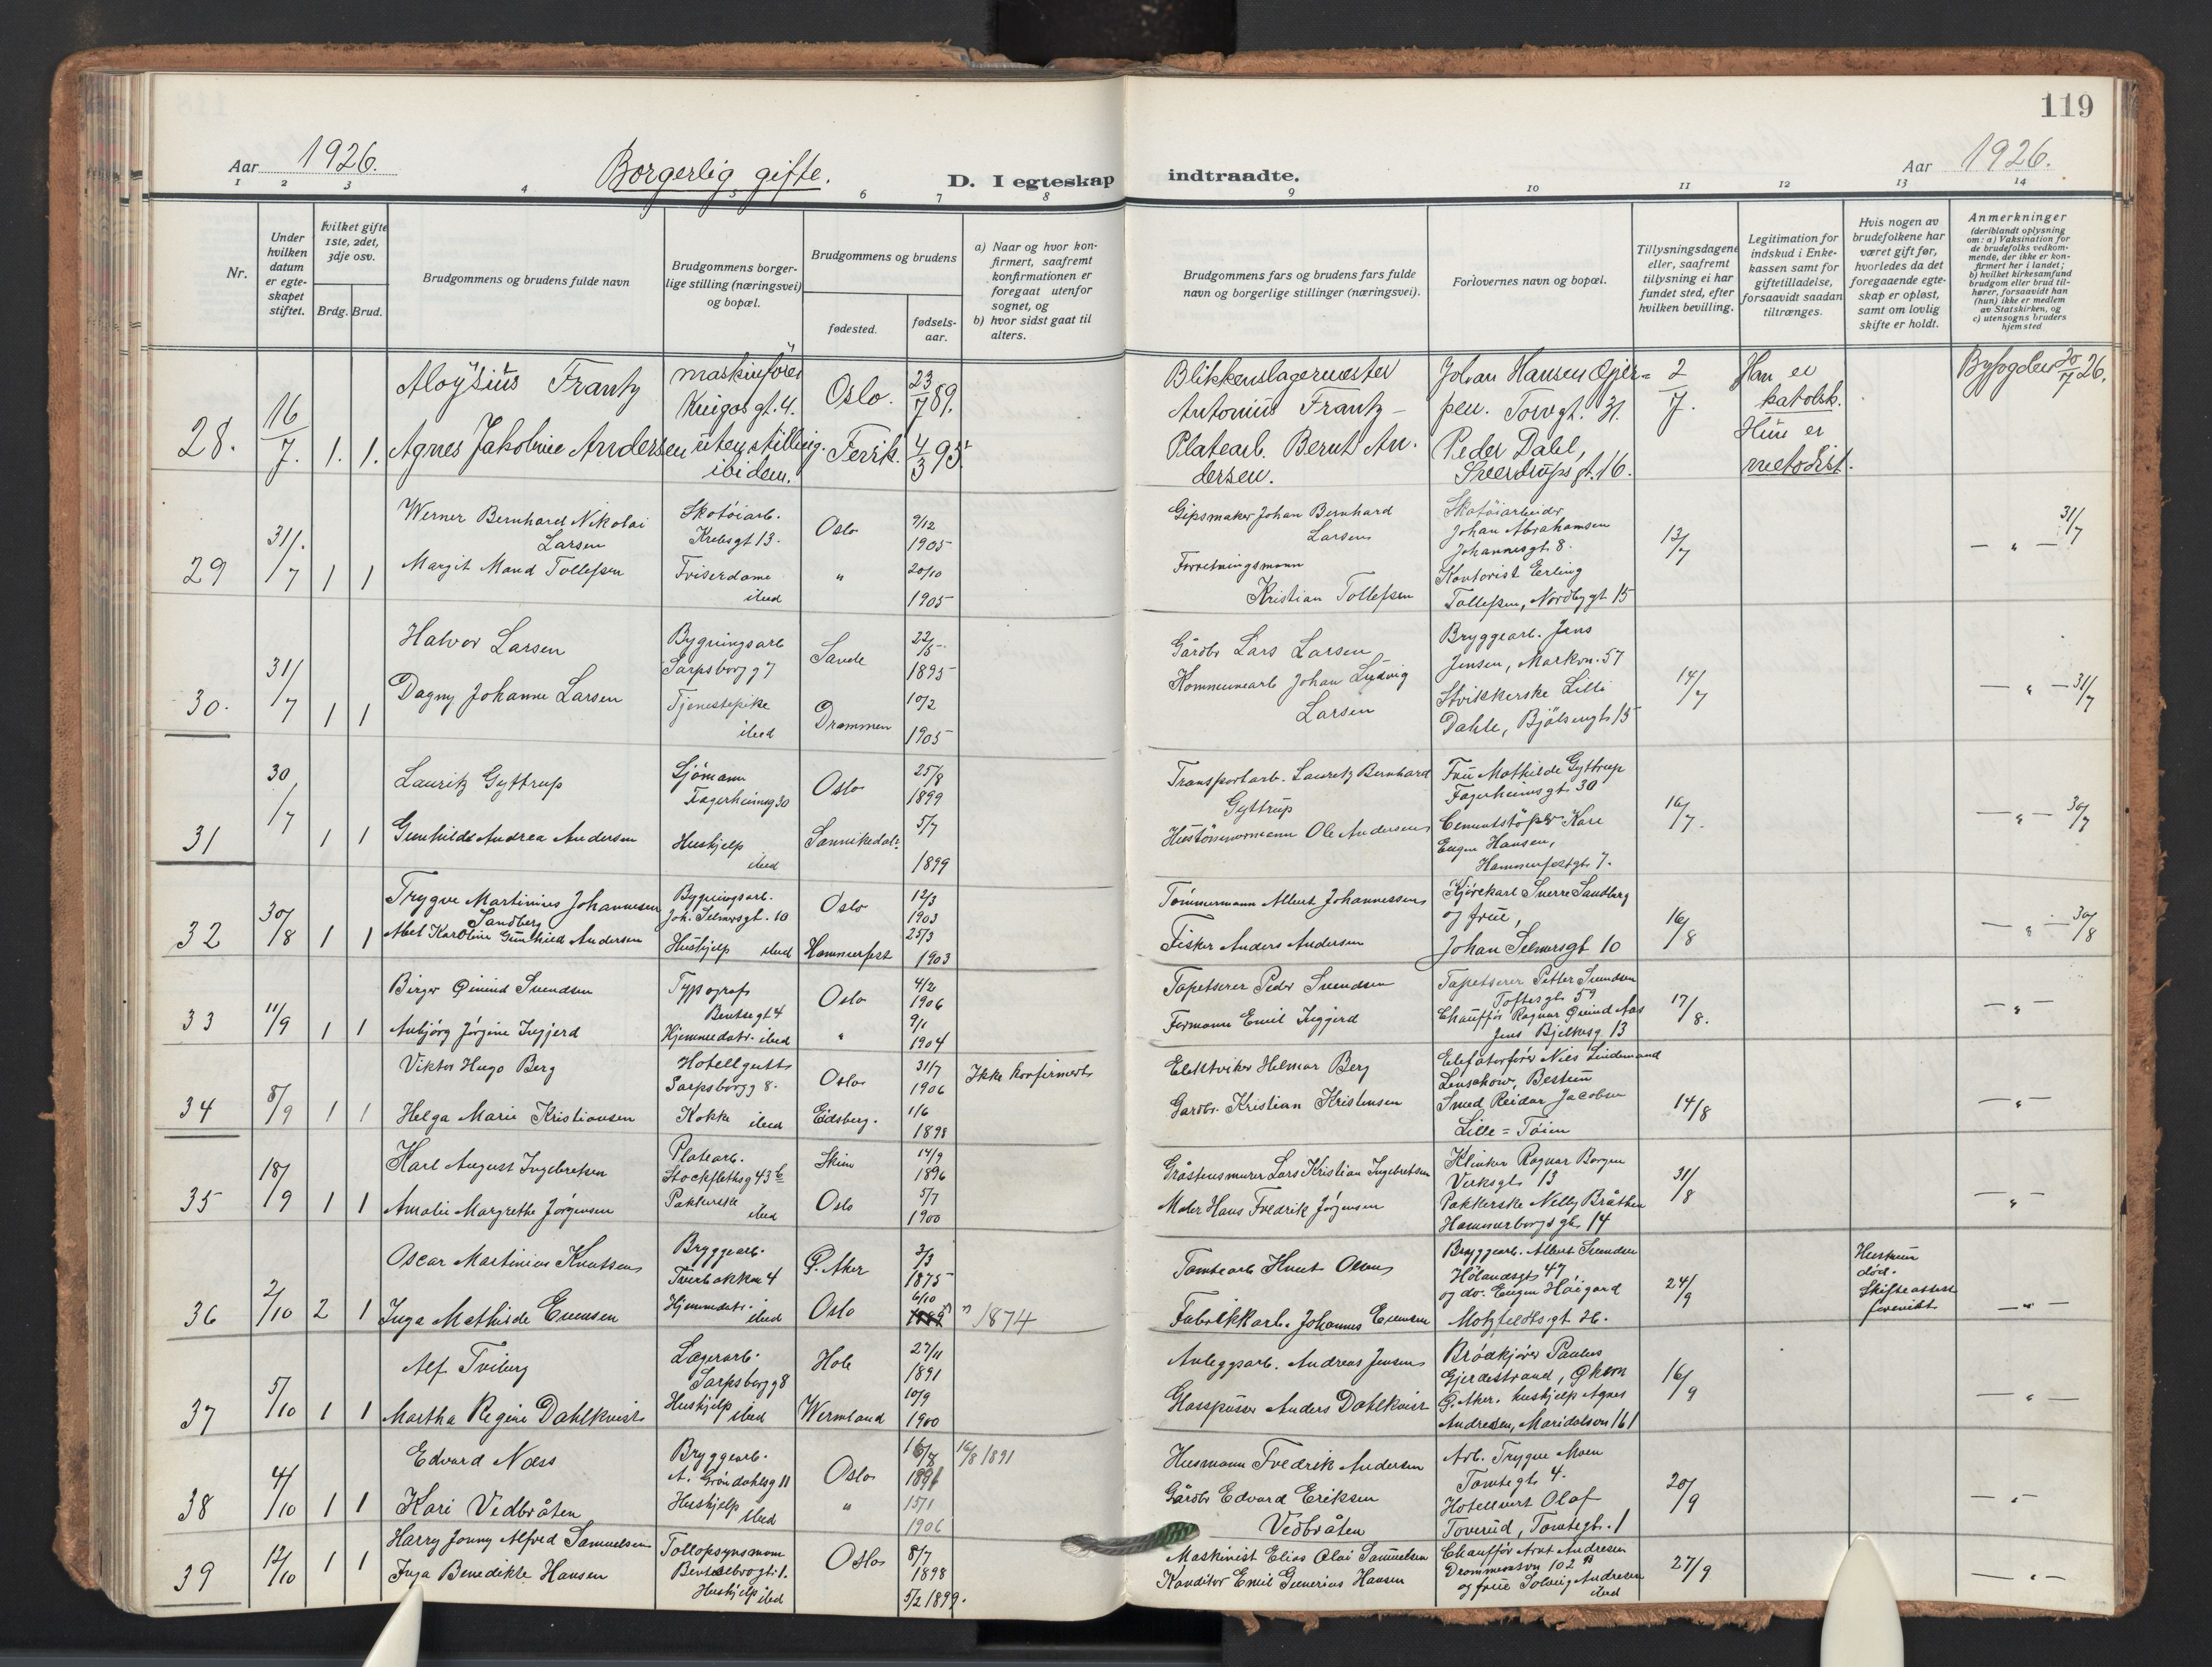 119
Aar 1926.
Borgerlig gifte.
D. I egteskap indtraadte.
Aar 1926.
1 2 3 4 5 6 7 8 9 10 11 12 13 14
Nr.
Under hvilken datum er egteskapet stiftet.
hvilket gifte 1ste, 2det, 3dje osv.
Brdg. Brud.
Brudgommens og brudens fulde navn
Brudgommens borgerlige stilling (næringsvei) og bopæl.
Brudgommens og brudens
fødested.
fødselsaar.
a) Naar og hvor konfirmert, saafremt konfirmationen er foregaat utenfor sognet, og
b) hvor sidst gaat til alters.
Brudgommens fars og brudens fars fulde navn og borgerlige stillinger (næringsvei).
Forlovernes navn og bopæl.
Tillysningsdagene eller, saafremt tillysning ei har fundet sted, efter hvilken bevilling.
Legitimation for indskud i Enkekassen samt for giftetilladelse, forsaavidt saadan tiltrænges.
Hvis nogen av brudefolkene har været gift før, hvorledes da det foregaaende egteskap er opløst, samt om lovlig skifte er holdt.
Anmerkninger (deriblandt oplysning om: a) Vaksination for de brudefolks vedkommende, der ikke er konfirmert her i landet; b) hvilket kirkesamfund brudgom eller brud tilhører, forsaavidt han (hun) ikke er medlem av Statskirken, og c) utensogns bruders hjemsted
28. 16/7. 1. 1.
Aloÿsius Frantz maskinfører Krügos gt. 4. Oslo. 23/7 89.
Agnes Jakobine Andersen uten stilling. ibidem. 4/3 95.
Blikkenslagermester Antonius Frantz -
Platearb. Bernt Andersen.
Johan Hansen Torvgt. 31.
Peder Dahl, Sverdrups gt. 16.
2/7. Han er katolsk. Hun er metodist.
Byfogden 20/7 26.
29 31/7 1 1
Werner Bernhard Nikolai Larsen Skotøiarb. Krebsgt 13. Oslo 9/12 1905
Margit Maud Tollefsen Friserdame ibid " 20/10 1905
Gipsmaker Johan Bernhard Larsen
Forretningsmann Kristian Tollefsen
Skotøiarbeider Johan Abrahamsen Johannesgt. 8.
Kontorist Erling Tollefsen, Nordbygt 15
13/7 — " — 31/7
30. 31/7 1 1
Halvor Larsen Bygningsarb Sarpsborg g 7 Sande 22/5 1895
Dagny Johanne Larsen Tjenestepike ibid Drammen 10/2 1905
Gårdbr Lars Larsen
Kommunearb Johan Ludvig Larsen
Bryggearb. Jens Jensen, Markvn. 57
Strikkerske Lilli Dahle, Bjølsengt. 15
14/7 — " — 31/7
31 30/7 1 1
Lauritz Gyttrup Sjömann Fagerheimsg 30 Oslo 25/8 1899
Gunhilde Andrea Andersen Hushjelp ibid Sannikedal. 5/7 1899
Transportarb. Lauritz Bernhard Gyttrup
Hustömmermann Ole Andersen
Fru Mathilde Gyttrup Fagerheimsgt. 30
Cementstöper Kare Eugen Hansen, Hammerfestgt. 7.
16/7. — " — 30/7
32 30/8 1 1
Trygve Martinius Johannesen Sandberg Bygningsarb. Joh. Selmersgt. 10 Oslo 12/3 1903
Abel Karoline Gunhild Andersen Hushjelp ibid Hammerfest 25/3 1903
Tømmermann Albert Johannessen
Fisker Anders Andersen
Kjørekarl Sverre Sandberg og frue, Johan Selmersgt 10
16/8 — " — 30/8
33 11/9 1 1
Birger Øivind Svendsen Typograf Bentse gt 4 Oslo 4/2 1906
Anbjörg Jörgine Ingjerd Hjemmedatr. ibid " 9/1 1904
Tapetserer Peder Svendsen
Formann Emil Ingjerd
Tapetserer Petter Svendsen Toftesgt. 59
Chauffør Ragnar Øivind Aas Jens Bjelkesg. 13
17/8. — " —
34 8/9 1 1
Viktor Hugo Berg Hotellgutt Sarpsborg g 8. Oslo 31/7 1906 Ikke konfirmert
Helga Marie Kristiansen Kokke ibid Eidsberg. 1/6 1898
Elektriker Helmar Berg
Gardbr. Kristian Kristensen
Elefatorfører Nils Lindemand Lenschow, Bestun
Smed Reidar Jacobsen Lille = Tøien
14/8 — " —
35 18/9 1 1
Karl August Ingebretsen Platearb. Stockflethsg 43 b Skien 14/9 1896
Amalie Margrethe Jörgensen Pakkerske ibid Oslo 5/7 1900
Gråstensmurer Lars Kristian Ingebretsen
Maler Hans Fredrik Jörgensen
Klinker Ragnar Borgen Verksgt. 13
Pakkerske Nelly Bråthen Hammerborgs gt. 14
31/8 — " —
36 2/10 2 1
Oscar Martinius Knutsen Bryggearb. Tverbakken 4 Ø. Aker 3/3 1875
Inga Mathilde Evensen Hjemmedatr. ibid Oslo 6/10 " 1874
Tomtearb Knut Olsen
Fabrikkarb. Johannes Evensen
Bryggearb. Albert Svendsen Hølandsgt. 47
og do. Eugen Høigard Motzfeldtsgt. 26.
24/9 Hustruen død. Skifteattest forevist — " —
37 5/10 1 1
Alf Tviberg Lagerarb. Sarpsborg g 8 Hole 27/11 1891
Martha Regine Dahlkvist Hushjelp ibid Wermland 10/9 1900
Anleggsarb. Andreas Jensen
Glasspuser Anders Dahlkvist
Brødkjører Paulus Gjerdestrand, Økern Ø. Aker. hushjelp Agnes Andresen, Maridalsvn 161
16/9 — " —
38 4/10 1 1
Edvard Næss Bryggearb. A. Gröndahlsg 11 Oslo 16/8 1891 16/8 1891
Kari Vedbråten Hushjelp ibid " 15/1 1906
Husmann Fredrik Andersen
Gårdbr Edvard Eriksen Vedbråten
Arb. Trygve Moen Tomtegt. 4.
Hotellvert Olaf Toverud, Tomtegt. 1
20/9 — " —
39 12/10 1 1
Harry Jonny Alfred Samuelsen Tollopsynsmann Bentsebrogt. 1. Oslo 8/7 1898
Inga Benedikte Hansen Hushjelp ibid 5/2 1899.
Maskinist Elias Olai Samuelsen
Konditor Emil Gunerius Hansen
Chauffør Arnt Andresen Drammensvn 102 B
og frue Solveig Andresen ibid
27/9 — " —